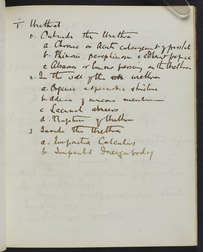 Urethral
Outside the Urethra
a Chronic or Acute enlargement of prostate
b. Phimosis paraphimosis
c Abscess or tumour pressing on the Urethra
2. In the wall of the urethra
a. Organic & spasmodic stricture
b. Adema of mucous membrane
c Lacunal abscess
d. Rupture of Urethra
3 Inside the Urethra
a. Impacted Calculus
b Impacted Foreign body